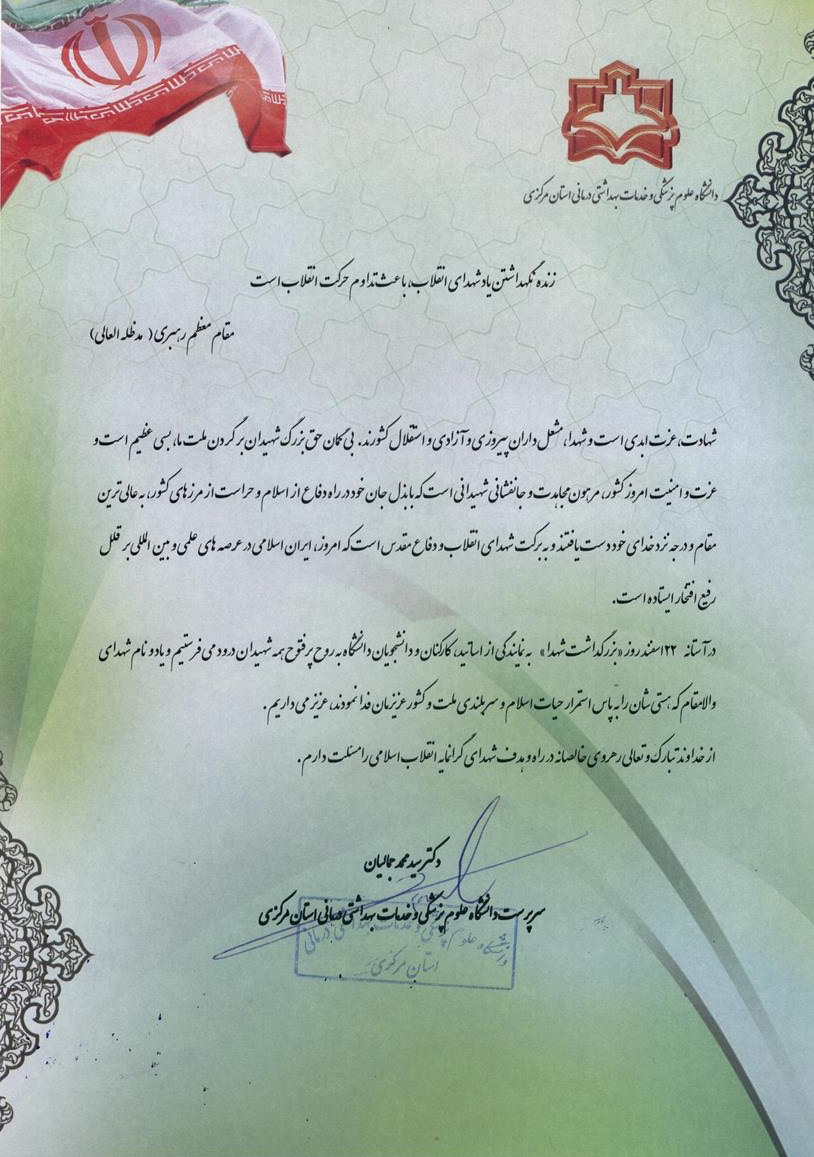 دانشگاه علوم پزشکی و خدمات بهداشتی درمانی استان مرکزی
زنده نگهداشتن یاد شهدای انقلاب، باعث تداوم حرکت انقلاب است
مقام معظم رهبری ( مدظله العالی)
شهادت، عزت ابدی است و شهدا، مشعل داران پیروزی و آزادی و استقلال کشورند. بی گمان حق بزرگ شهیدان بر گردن ملت ما، بسی عظیم است و
عزت و امنیت امروز کشور، مرهون مجاهدت و جانفشانی شهیدانی است که با بذل جان خود در راه دفاع از اسلام و حراست از مرزهای کشور، به عالی ترین
مقام و درجه نزد خدای خود دست یافتند و به برکت شهدای انقلاب و دفاع مقدس است که امروز، ایران اسلامی در عرصه های علمی و بین المللی بر قلل
رفیع افتخار ایستاده است.
در آستانه ۲۲ اسفند روز «بزرگداشت شهدا» به نمایندگی از اساتید، کارکنان و دانشجویان دانشگاه به روح پرفتوح همه شهیدان درود می فرستیم و یاد و نام شهدای
والامقام که هستی شان را به پاس استمرار حیات اسلام و سربلندی ملت و کشور عزیزمان فدا نمودند، عزیز می داریم.
از خداوند تبارک و تعالی رهروی خالصانه در راه و هدف شهدای گرانمایه انقلاب اسلامی را مسئلت دارم.
دکتر سید محمد جمالیان
سرپرست دانشگاه علوم پزشکی و خدمات بهداشتی درمانی استان مرکزی
دانشگاه علوم پزشکی و خدمات بهداشتی درمانی
استان مرکزی